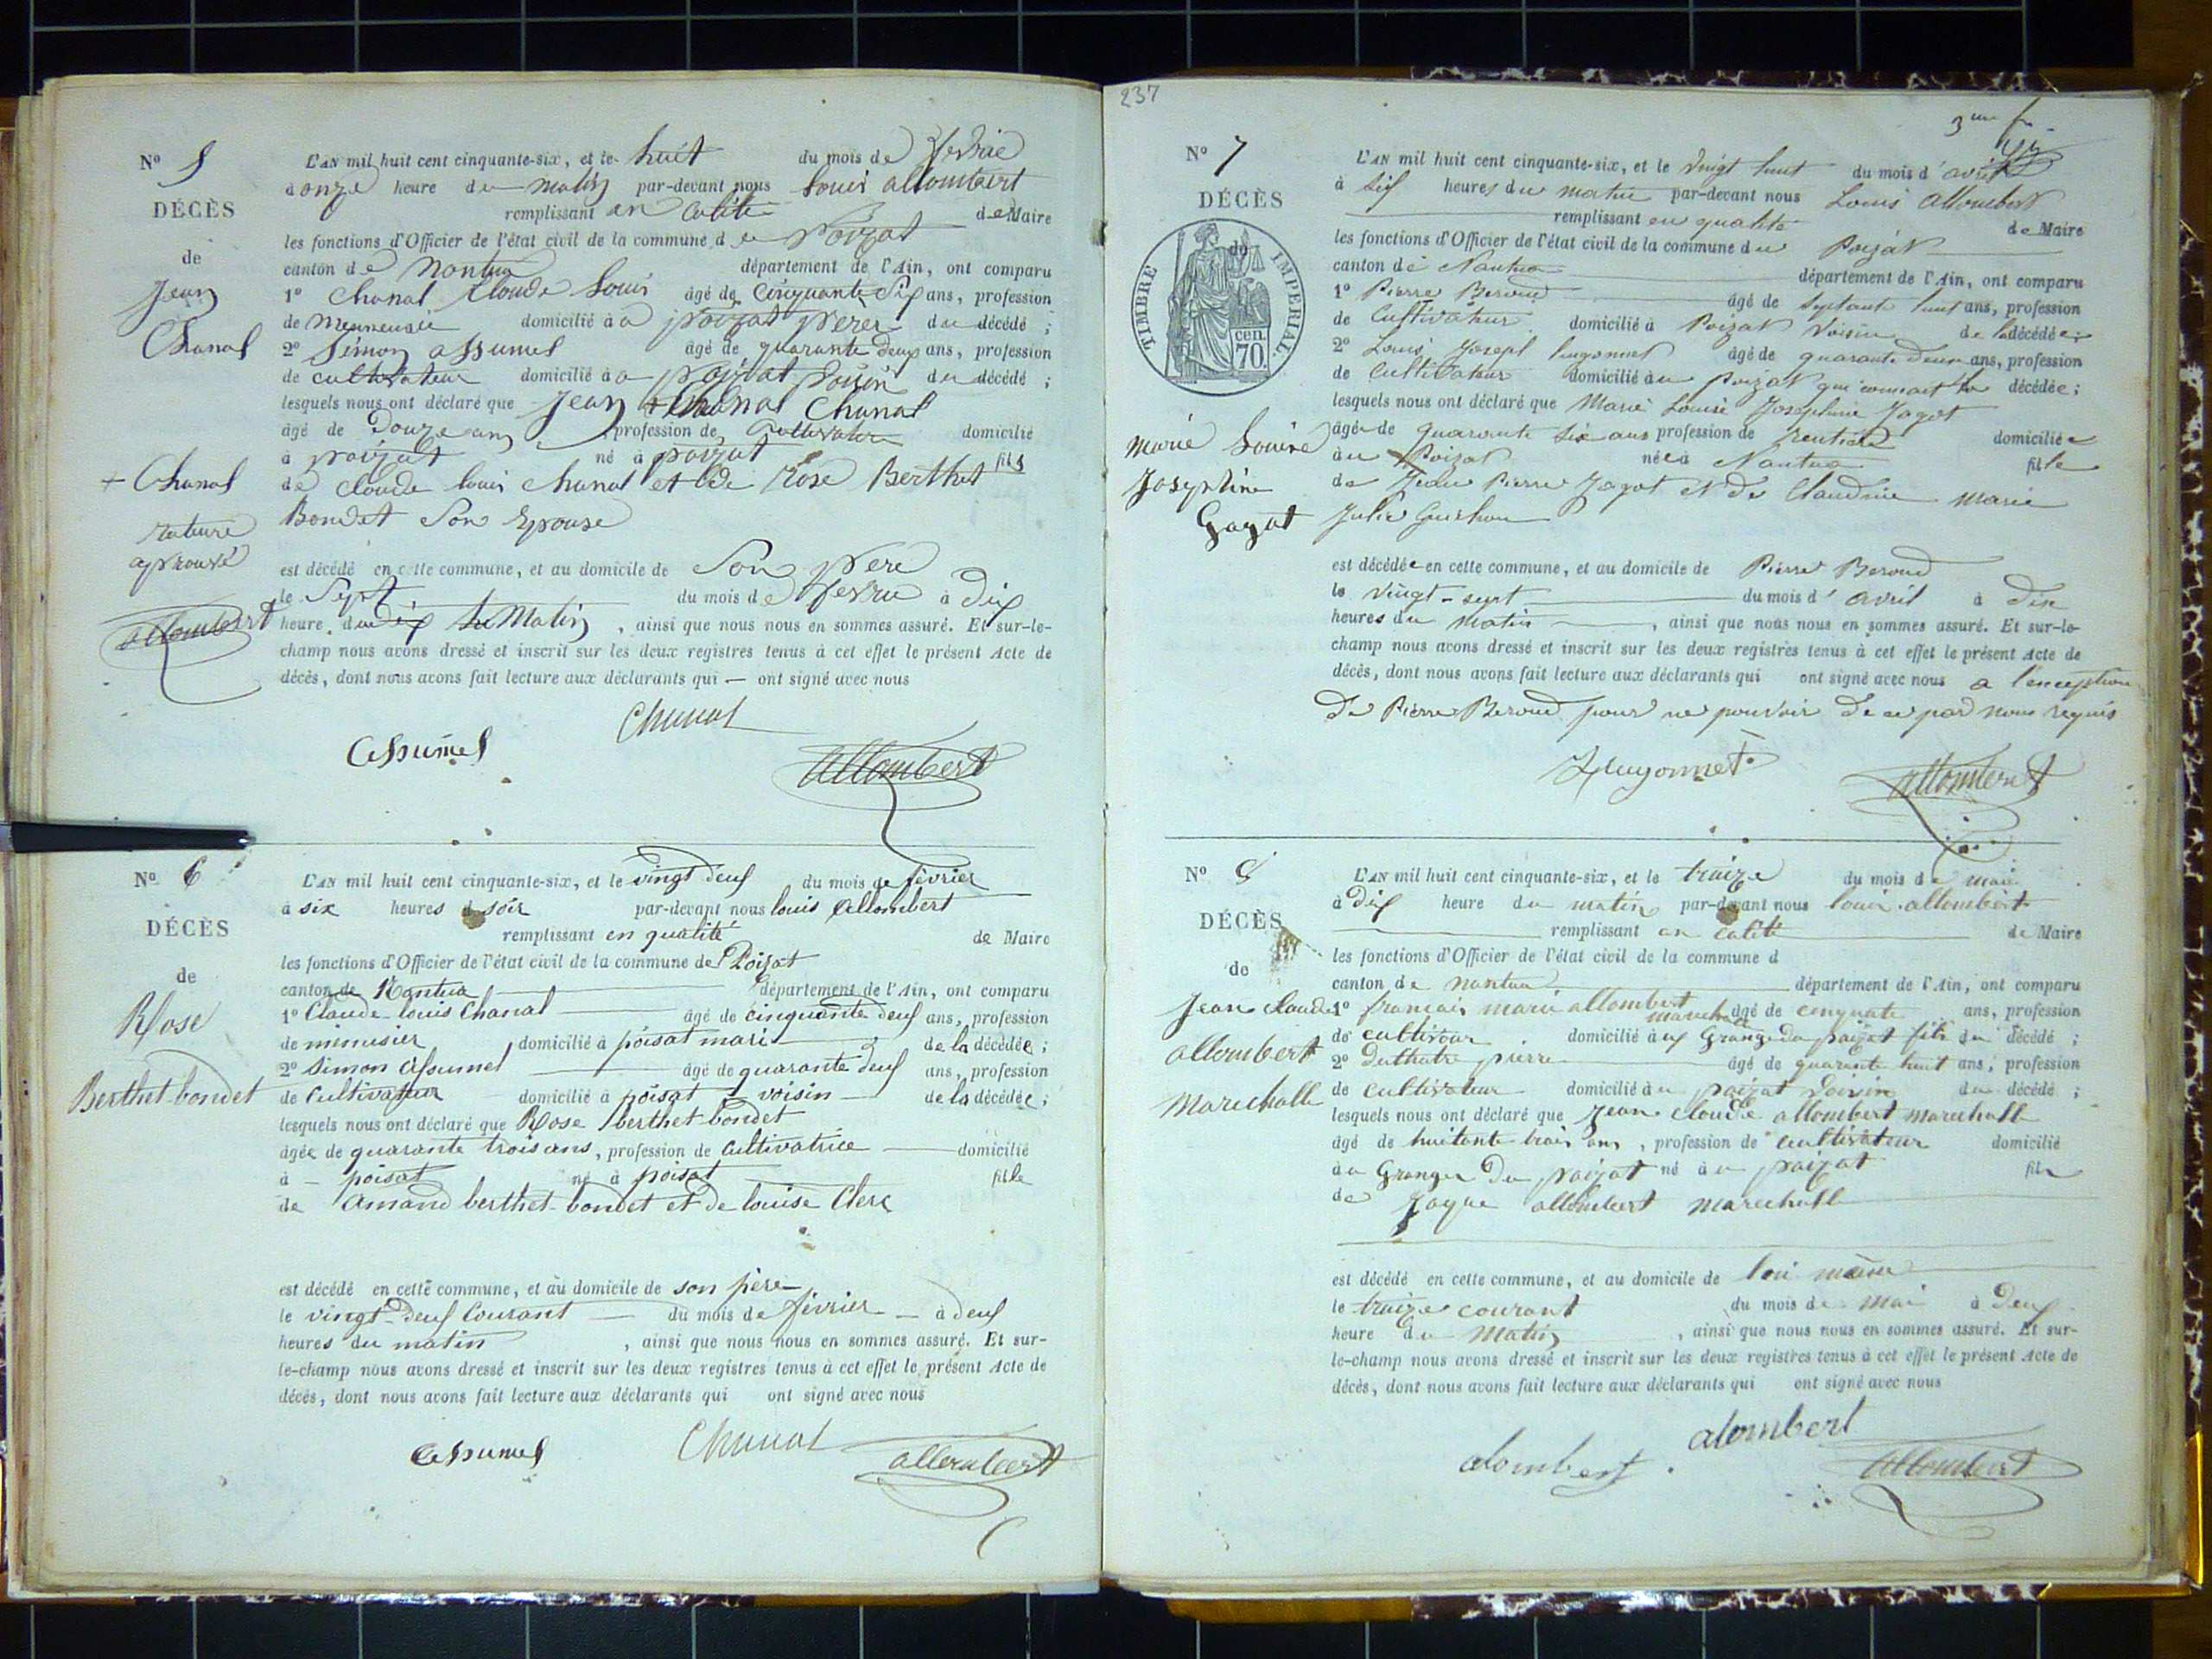 N° 5
DÉCÈS
de
Jean
Chanal
+ Chanal
rature
aprouvé
allombert
L'AN mil huit cent cinquante-six, et le huit du mois de
à onze heure du matin par-devant nous Louis allombert
remplissant en calité de Maire
les fonctions d'Officier de l'état civil de la commune du Poizat
canton de Nantua département de l'Ain, ont comparu
1° Chanal Claude Louis âgé de Cinquante Six ans, profession
de domicilié à poizat du décédé ;
2° Simon assumel âgé de quarante deux ans, profession
de cultivateur domicilié à poizat voisin du décédé ;
lesquels nous ont déclaré que Jean Chanal
âgé de Douze ans profession de Cultivateur domicilié
à poizat né à poizat fils
de Claude Louis chanal et de Rose Berthet
Bondet Son Epouse
est décédé en cette commune, et au domicile de Son père
le Sept du mois de à Dix
heure du Matin, ainsi que nous nous en sommes assuré. Et sur-le-
champ nous avons dressé et inscrit sur les deux registres tenus à cet effet le présent Acte de
décès, dont nous avons fait lecture aux déclarants qui — ont signé avec nous
Chanal
assumel
allombert
N° 6
DÉCÈS
de
Rose
Berthet-bondet
L'AN mil huit cent cinquante-six, et le vingt deux du mois de février
à six heures d soir par-devant nous louis Allombert
remplissant en qualité de Maire
les fonctions d'Officier de l'état civil de la commune de Poizat
canton de Nantua département de l'Ain, ont comparu
1° Claude-louis Chanal âgé de cinquante deux ans, profession
de menuisier domicilié à poisat mari de la décédée ;
2° Simon Assumel âgé de quarante deux ans, profession
de Cultivateur domicilié à poisat voisin de la décédée ;
lesquels nous ont déclaré que Rose berthet bondet
âgée de quarante trois ans, profession de Cultivatrice domicilié
à poisat né à poisat fille
de Amand berthet-bondet et de louise Clerc
est décédé en cette commune, et au domicile de son père
le vingt-deux Courant du mois de février à deux
heures du matin, ainsi que nous nous en sommes assuré. Et sur-
le-champ nous avons dressé et inscrit sur les deux registres tenus à cet effet le présent Acte de
décès, dont nous avons fait lecture aux déclarants qui ont signé avec nous
assumel Chanal allombert
237
N° 7
DÉCÈS
de
TIMBRE IMPERIAL
70 cen.
marie Louise
Joséphine
Gagot
L'AN mil huit cent cinquante-six, et le vingt huit du mois d'avril
à six heures du matin par-devant nous Louis Allombert
remplissant en qualité de Maire
les fonctions d'Officier de l'état civil de la commune du Poizat
canton de Nantua département de l'Ain, ont comparu
1° Pierre Beroud âgé de septante huit ans, profession
de Cultivateur domicilié à Poizat voisin de la décédée
2° Louis Joseph hugonnet âgé de quarante deux ans, profession
de cultivateur domicilié au Poizat qui connait la décédée ;
lesquels nous ont déclaré que Marie Louise Joséphine Jagot
âgée de quarante six ans profession de rentière domiciliée
au Poizat née à Nantua fille
de Jean Pierre Jagot et de Claudine Marie
Julie
est décédée en cette commune, et au domicile de Pierre Beroud
le vingt-sept du mois d'avril à dix
heures du matin, ainsi que nous nous en sommes assuré. Et sur-le-
champ nous avons dressé et inscrit sur les deux registres tenus à cet effet le présent Acte de
décès, dont nous avons fait lecture aux déclarants qui ont signé avec nous a l'exception
de Pierre Beroud pour ne pouvoir de ce par nous requis
Hugonnet
allombert
N° 8
DÉCÈS
de
Jean Claude
allombert
marechalle
L'AN mil huit cent cinquante-six, et le traize du mois de mai
à Dix heure du matin par-devant nous louis allombert
remplissant en calité de Maire
les fonctions d'Officier de l'état civil de la commune d
canton de nantua département de l'Ain, ont comparu
1° francois marie allombert marechalle âgé de cinquate ans, profession
de domicilié aux Grange du poizat fils du décédé ;
2° Duthatre pierre âgé de quarante huit ans, profession
de cultivateur domicilié au poizat voisin du décédé ;
lesquels nous ont déclaré que Jean Claude allombert marechalle
âgé de huitante trois ans, profession de cultivateur domicilié
à Granges Du poizat né au poizat fils
de Jaque allombert marechalle
est décédé en cette commune, et au domicile de lui même
le traize courant du mois de mai à Deux
heure du matin, ainsi que nous nous en sommes assuré. Et sur-
le-champ nous avons dressé et inscrit sur les deux registres tenus à cet effet le présent Acte de
décès, dont nous avons fait lecture aux déclarants qui ont signé avec nous
alombert
alombert
allombert